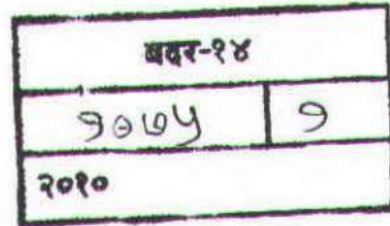 बदर-१४
१०७५ १
२०१०